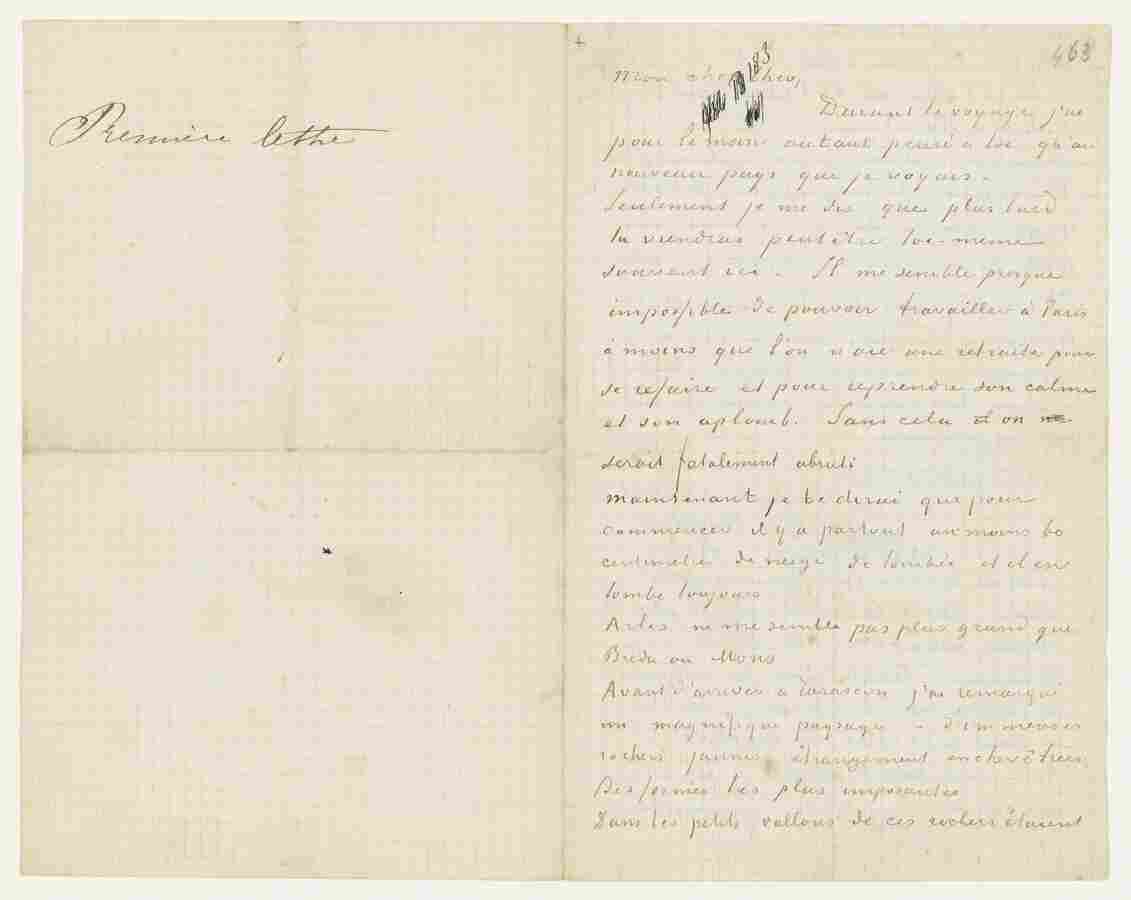 Première lettre
463
Mon cher Theo,
Durant le voyage j'ai
pour le moins autant pensé à toi qu'au
nouveau pays que je voyais.
Seulement je me dis que plus tard
tu viendras peut être toi-meme
souvent ici. Il me semble presque
impossible de pouvoir travailler à Paris
à moins que l'on n'aie une retraite pour
se refaire et pour reprendre son calme
et son aplomb. Sans cela on
serait fatalement abruti
maintenant je te dirai que pour
commencer il y a partout au moins 60
centimetres de neige de tombée et il en
tombe toujours
Arles ne me semble pas plus grand que
Breda ou Mons
Avant d'arriver à Tarascon j'ai remarqué
un magnifique paysage – d'immenses
rochers jaunes étrangement enchevêtrés,
des formes les plus imposantes
Dans les petits vallons de ces rochers étaient